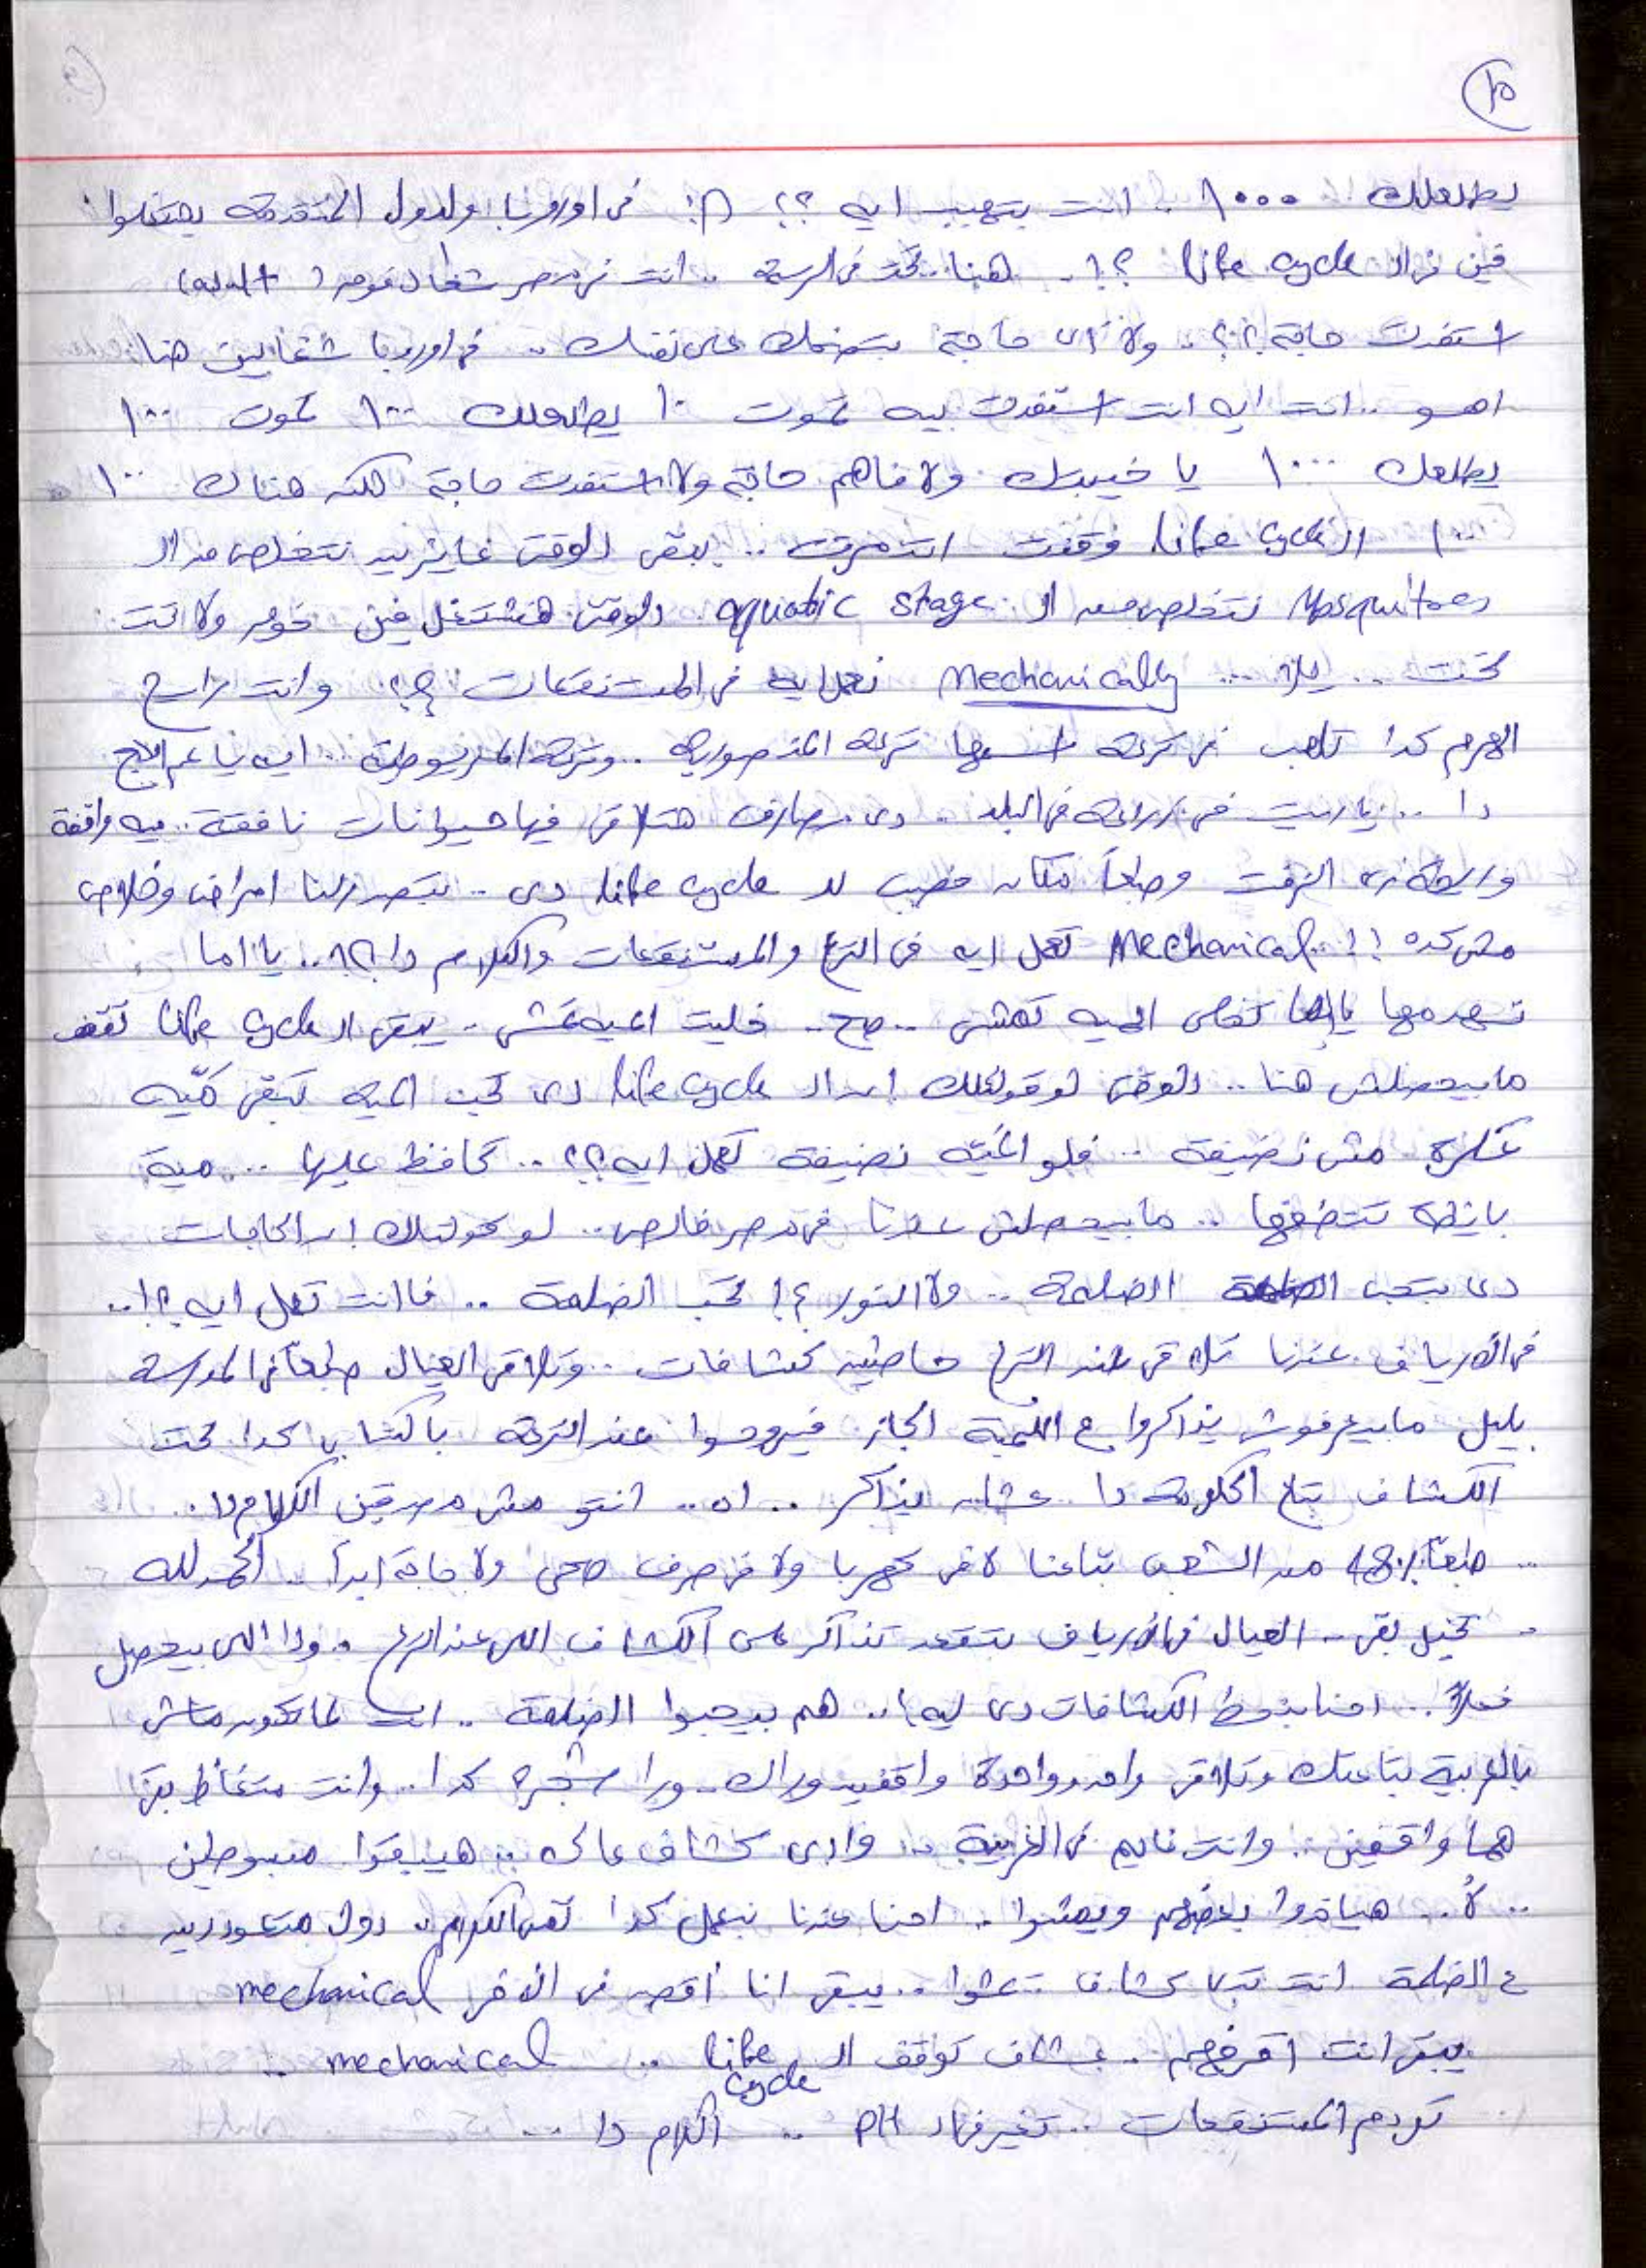 ١٥
يطلعلك ١٠٠٠ .. انت بتهبب ايه ؟؟ !! فى اوروبا والدول المتقدمة بيشتغلوا
فين فى الـ life cycle ؟! .. هنا تحت فى الـ .. انت فى مصر شغال فوق ( adult )
استفدت حاجة ؟؟ .. ولا اى حاجة بتضحك على نفسك .. فى اوروبا شغالين هنا
اهو .. انت ايه انت استفدت بيه تموت ١٠ يطلعلك ١٠٠ تموت ١٠٠
يطلعلك ١٠٠٠ يا خيبتك ولا فاهم حاجة ولا استفدت حاجة لكن هناك ١٠٠
١٠٠ الـ life cycle وقفت انت .. يبقى دلوقتى عايزين نتخلص من الـ
Mosquitoes نتخلص من الـ aquatic stage دلوقتى هنشتغل فين فوق ولا تحت
تحت .. يلا ... Mechanically نعمل ايه فى المستنقعات ؟؟ وانت رايح
الهرم كدا تلاقى ترعة اسمها ترعة المنصورية .. وترعة المريوطية .. ايه يا عم
دا .. ياريت فى زراعة فى البلد .. دى مصارف هتلاقى فيها حيوانات نافقة .. ميه واقفة
وريحة زى الزفت وطبعاً مكان خصب للـ life cycle دى .. بتصدرلنا امراض وخلاص
مش كده !! .. Mechanical تعمل ايه فى الترع والمستنقعات والكلام دا ؟!! .. يا اما
تردمها يا اما تخلى الميه تمشى .. صح .. خليت الميه تمشى .. يبقى الـ life cycle تقف
مابيحصلش هنا .. دلوقتى لو قولتلك ان الـ life cycle دى تحب الميه تبقى ميّه
عكرة مش نضيفة .. فلو الميّه نضيفة تعمل ايه ؟؟ .. تحافظ عليها .. مية
بايظة تنضفها .. مابيحصلش عندنا فى مصر خالص .. لو قولتلك ان الحاجات
دى بتحب الضلمة .. ولا النور ؟! تحب الضلمة .. فانت تعمل ايه ؟! ..
فى الارياف عندنا تلاقى عند الترع حاطين كشافات .. وتلاقى العيال طبعاً فى المدرسة
بليل مابيعرفوش يذاكروا ع اللمبة الجاز فيروحوا عند الترعة بالكتاب كدا تحت
الكشاف بتاع الحكومة دا عشان يذاكر .. اه .. انتو مش مصدقين الكلام دا ..
.. طبعاً ٤٨٪ من الشعب بتاعنا لا فى كهربا ولا فى صرف صحى ولا حاجة ابداً .. الحمد لله
.. تخيل بقى .. العيال فى الارياف بتقعد تذاكر على الكشاف اللى عند الترع .. ودا اللى بيحصل
فعلاً .. احنا بنحط الكشافات دى ليه ؟ .. هم بيحبوا الضلمة .. انت لما تكون ماشى
بالعربية بتاعتك وتلاقى واحد وواحدة واقفين وراك .. ورا شجرة كدا .. وانت متغاظ بقى
هما واقفين .. وانت نايم فى العربية .. وادى كشاف عالى .. هيبقوا مبسوطين
.. لأ .. هياخدوا بعضهم ويمشوا .. احنا عندنا نعمل كدا نفس الكلام .. دول متعودين
ع الضلمة انت تدى كشاف تمشوا .. يبقى انا اقصد فى الاخر mechanical
يبقى انت اقرفهم .. عشان توقف الـ life cycle .. mechanical ..
تردم المستنقعات .. تغير فى الـ PH .. الكلام دا ..